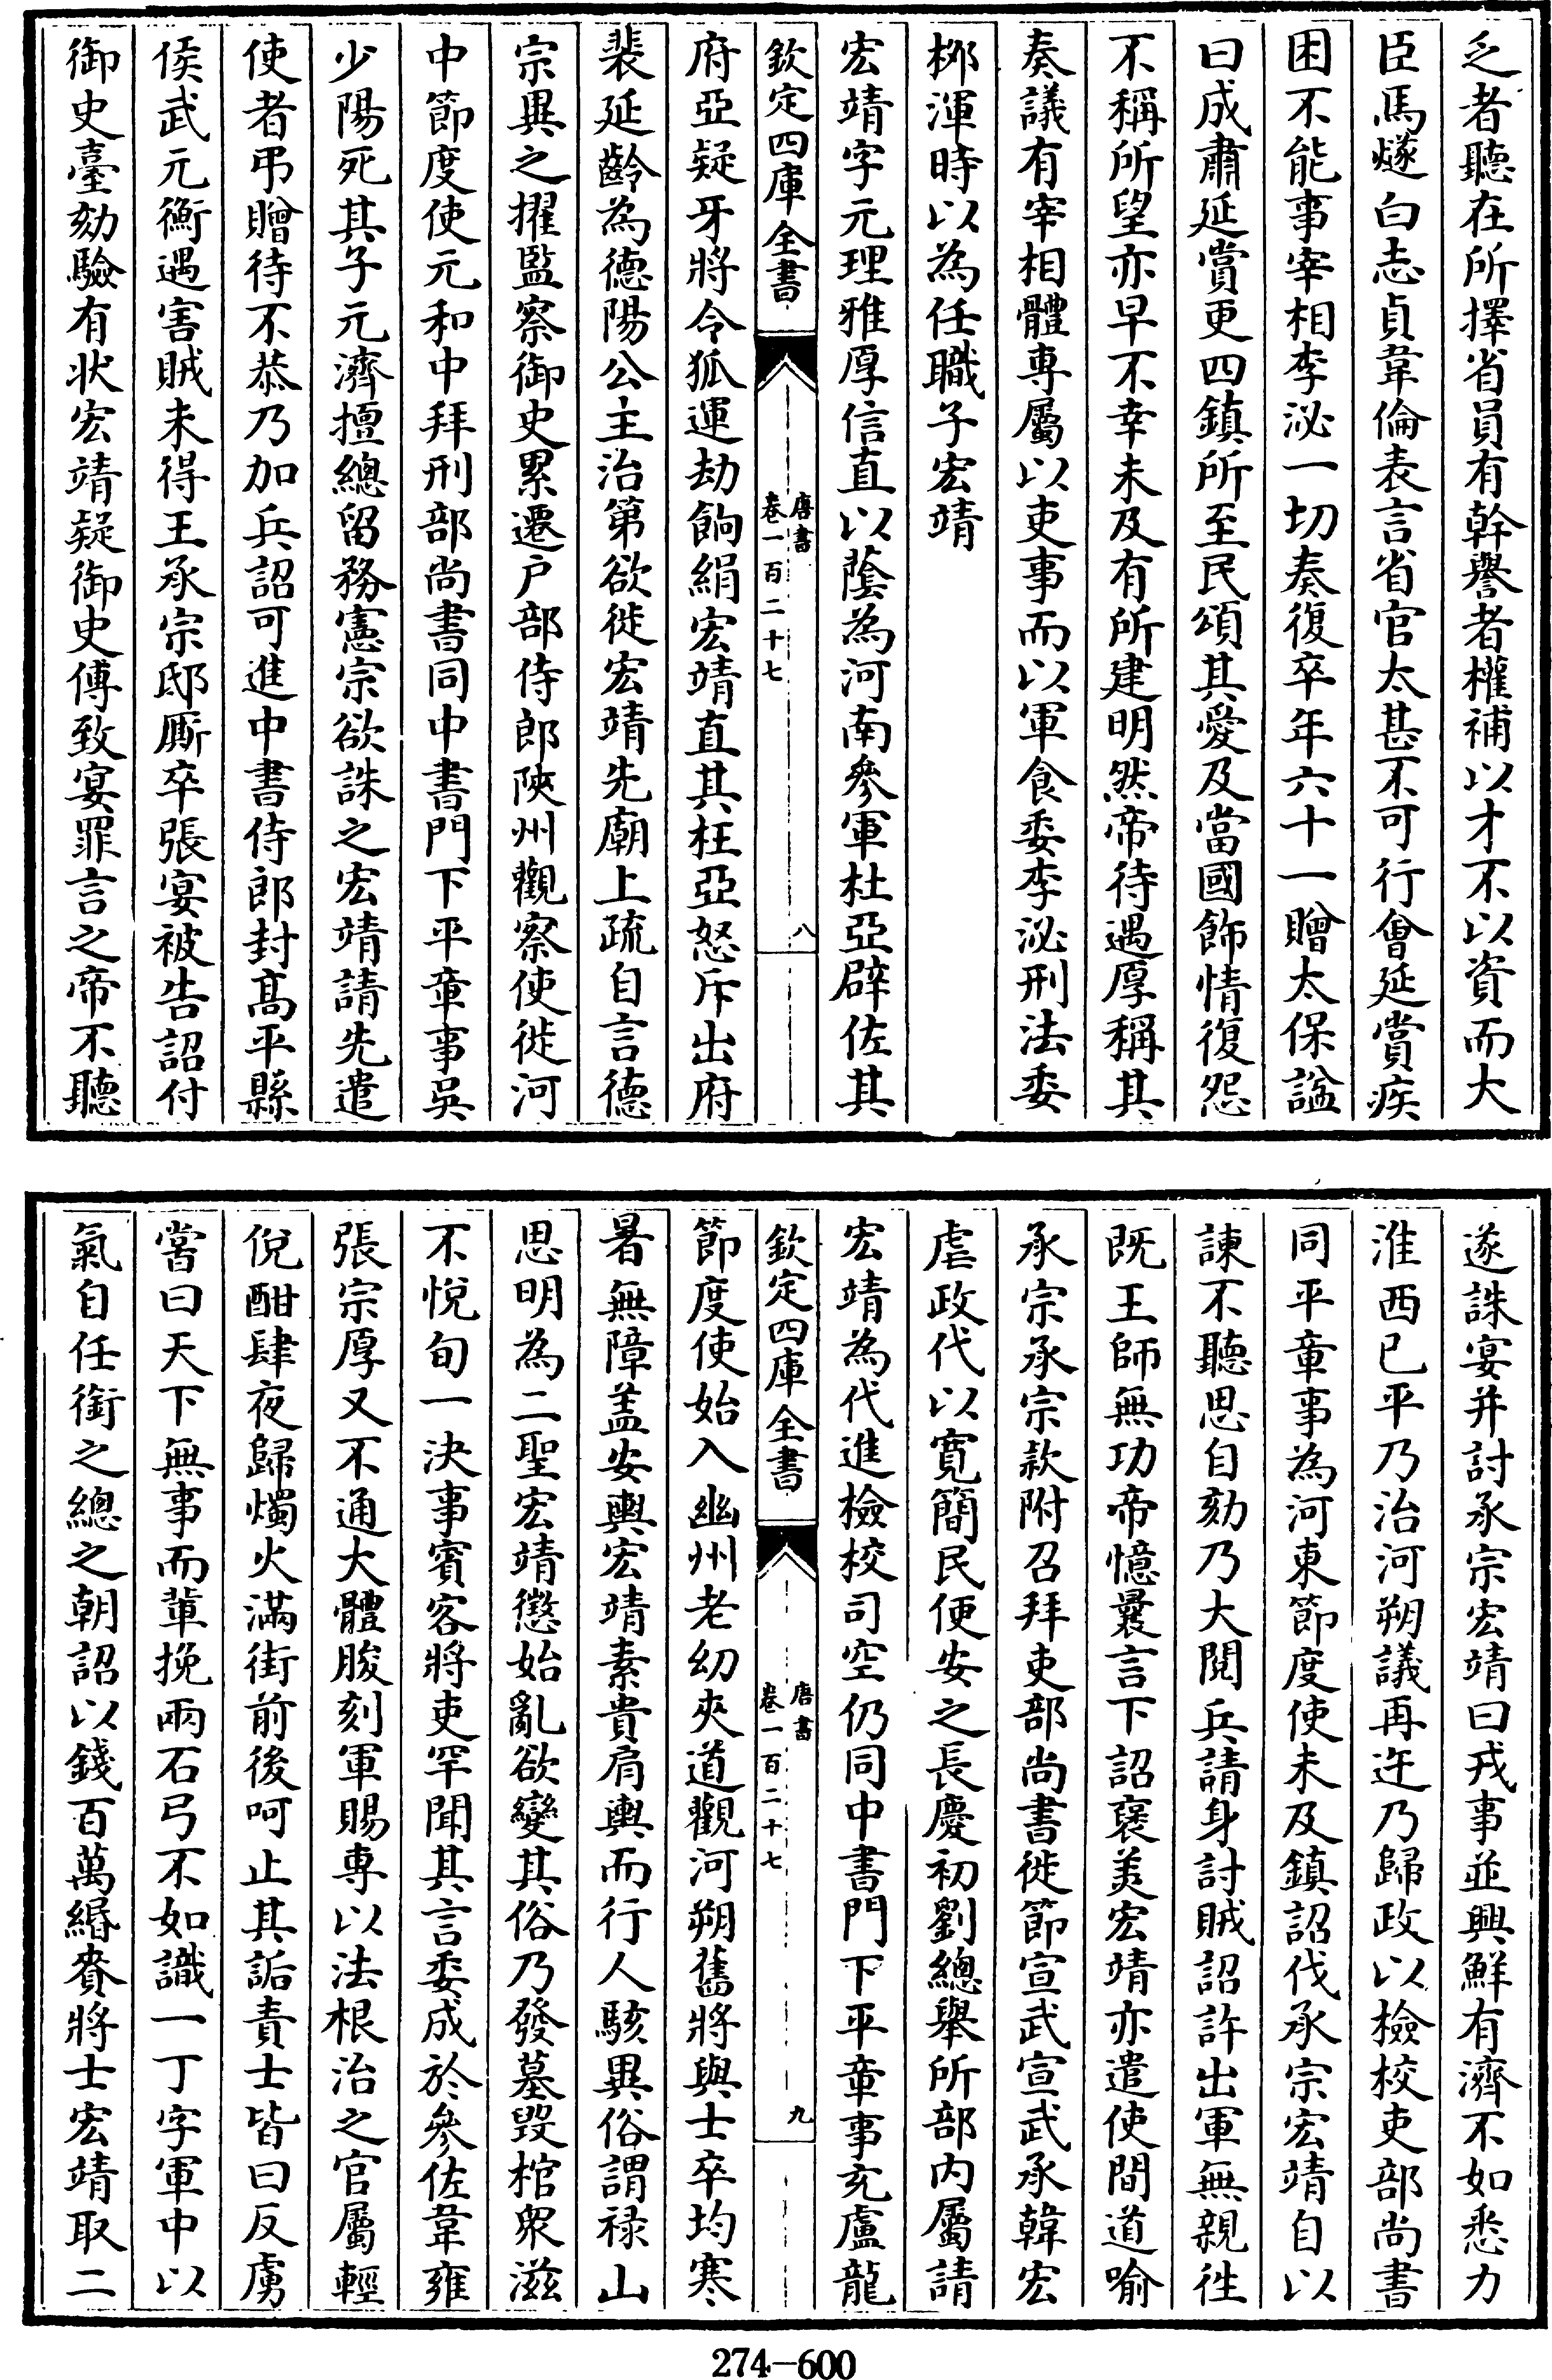 乏者聽在所擇省員有幹譽者權補以才不以資而大
臣馬燧白志貞韋倫表言省官太甚不可行會延賞疾
困不能事宰相李泌一切奏復卒年六十一贈太保謚
曰成肅延賞更四鎮所至民頌其愛及當國飾情復怨
不稱所望亦早不幸未及有所建明然帝待遇厚稱其
奏議有宰相體專屬以吏事而以軍食委李泌刑法委
桺渾時以為任職子宏靖
宏靖字元理雅厚信直以蔭為河南參軍杜亞辟佐其
欽定四庫全書
唐書
卷一百二十七
八
府亞疑牙將令狐運劫餉絹宏靖直其枉亞怒斥出府
裴延齡為德陽公主治第欲徙宏靖先廟上疏自言德
宗異之擢監察御史累遷戶部侍郎陝州觀察使徙河
中節度使元和中拜刑部尚書同中書門下平章事吳
少陽死其子元濟擅總留務憲宗欲誅之宏靖請先遣
使者弔贈待不恭乃加兵詔可進中書侍郎封高平縣
侯武元衡遇害賊未得王承宗邸厮卒張宴被告詔付
御史臺劾驗有狀宏靖疑御史傅致宴罪言之帝不聽
遂誅宴并討承宗宏靖曰戎事並興鮮有濟不如悉力
淮西已平乃治河朔議再迕乃歸政以檢校吏部尚書
同平章事為河東節度使未及鎮詔伐承宗宏靖自以
諫不聽思自劾乃大閱兵請身討賊詔許出軍無親徃
既王師無功帝憶曩言下詔褒美宏靖亦遣使間道喻
承宗承宗款附召拜吏部尚書徙節宣武宣武承韓宏
虐政代以寬簡民便安之長慶初劉總舉所部內屬請
宏靖為代進檢校司空仍同中書門下平章事充盧龍
欽定四庫全書
唐書
卷一百二十七
九
節度使始入幽州老幼夾道觀河朔舊將與士卒均寒
暑無障盖安輿宏靖素貴肩輿而行人駭異俗謂祿山
思明為二聖宏靖懲始亂欲變其俗乃發墓毀棺衆滋
不悅旬一決事賓客將吏罕聞其言委成於參佐韋雍
張宗厚又不通大體朘刻軍賜專以法根治之官屬輕
侻酣肆夜歸燭火滿街前後呵止其詬責士皆曰反虜
嘗曰天下無事而輩挽兩石弓不如識一丁字軍中以
氣自任銜之總之朝詔以錢百萬緡賚將士宏靖取二
274-600